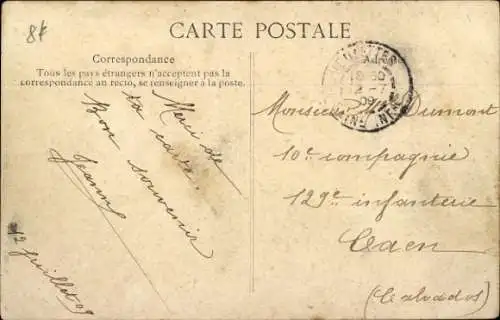 8k
CARTE POSTALE
Correspondance
Tous les pays étrangers n'acceptent pas la
correspondance au recto, se renseigner à la poste.
Merci de
ta carte.
Bon souvenir
Jeanne
12 Juillet 09
Adre
12 -7
09
Monsieur Dumont
10e compagnie
129e infanterie
Caen
(Calvados)